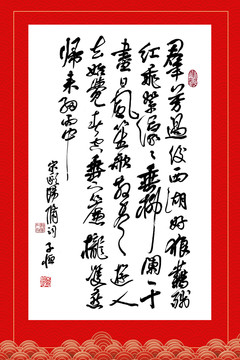 羣芳過後西湖好狼藉殘
紅飛絮濛〻垂柳闌干
盡日風笙歌散盡遊人
去始覺春空垂下簾櫳雙燕
歸來細雨中
宋歐陽脩詞子恒